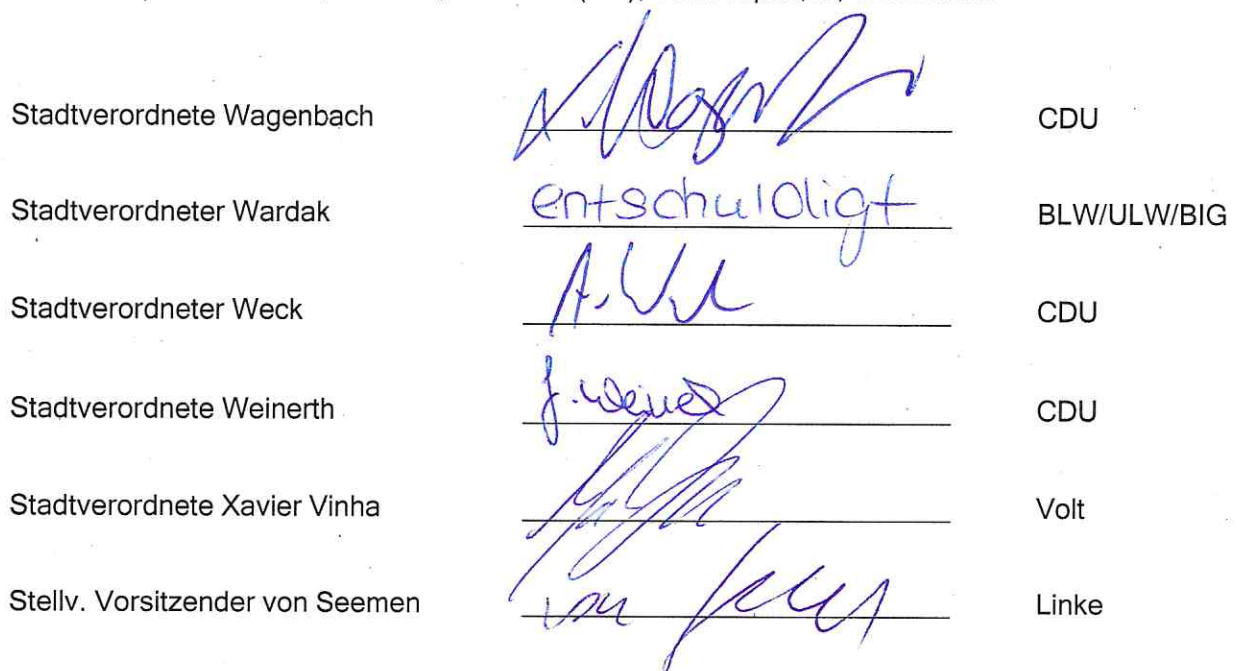 Stadtverordnete Wagenbach CDU
Stadtverordneter Wardak entschuldigt BLW/ULW/BIG
Stadtverordneter Weck A. CDU
Stadtverordnete Weinerth J. CDU
Stadtverordnete Xavier Vinha Volt
Stellv. Vorsitzender von Seemen von Linke